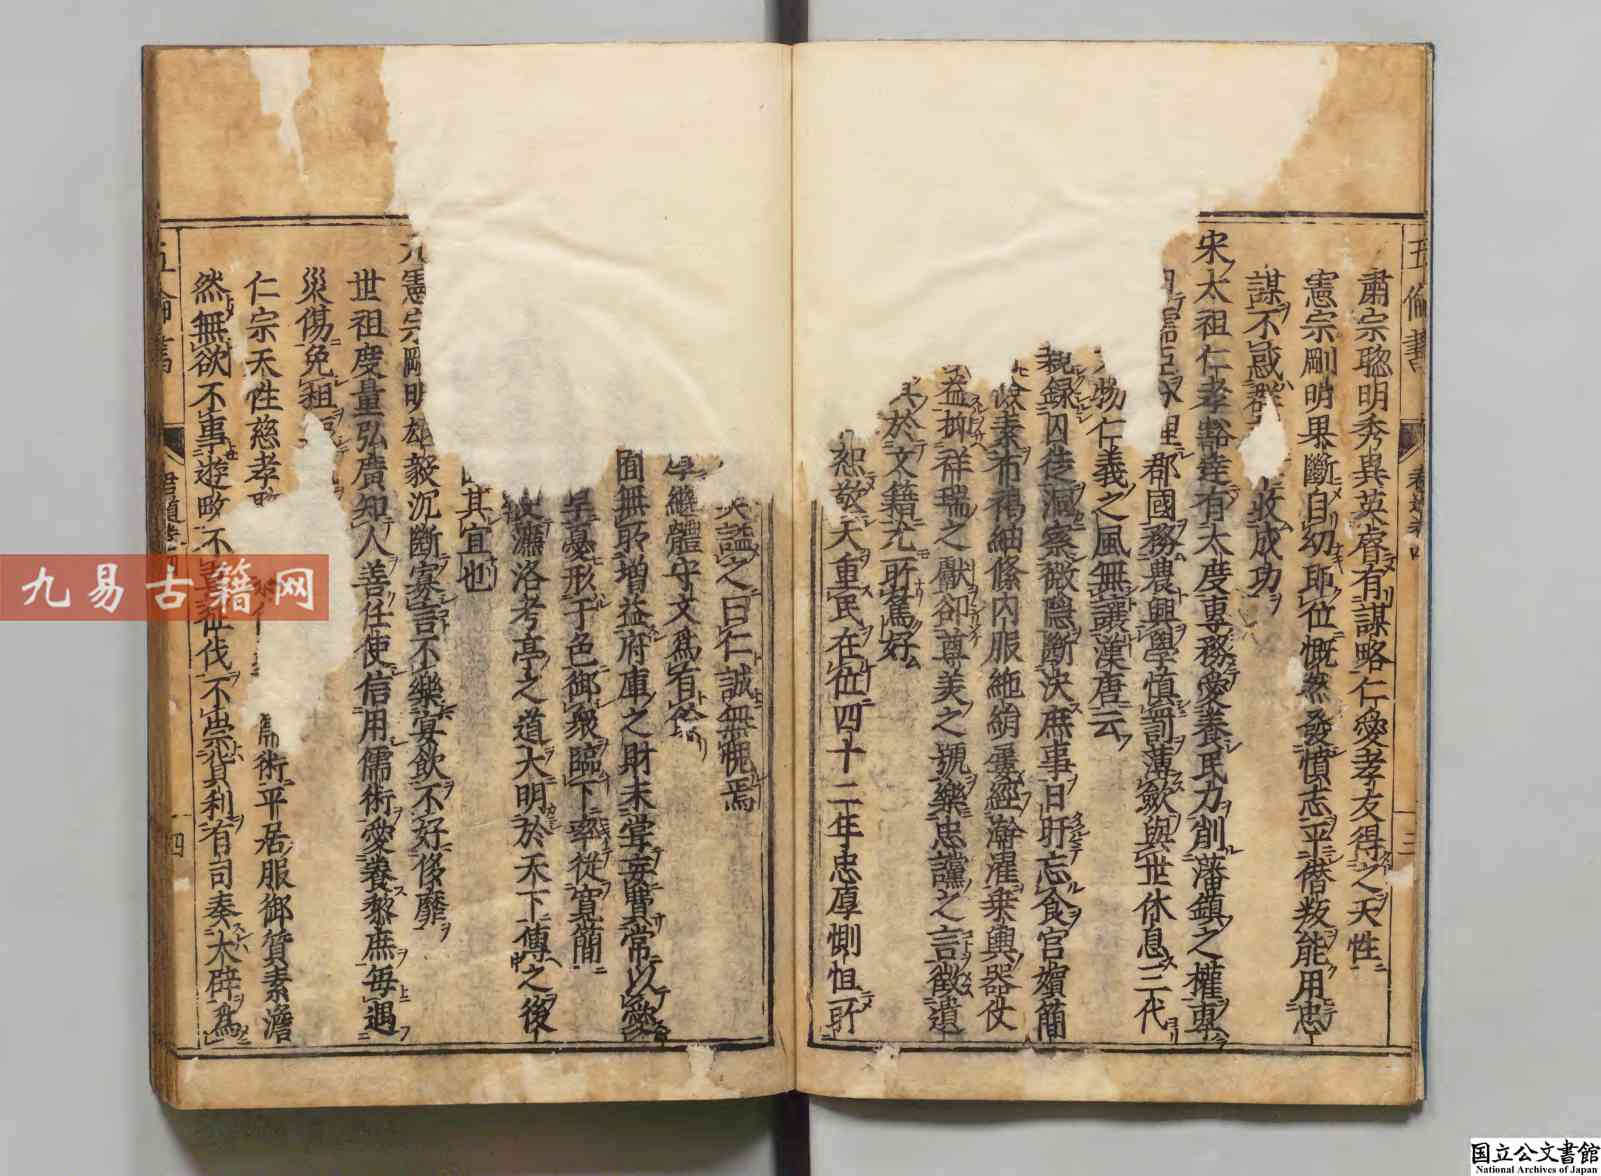 五倫書
三
肅宗聦明秀異英睿有謀略仁愛孝友得之天性
憲宗剛明果斷自幼即位慨然發憤志平僭叛能用忠
謀不惑群
收成功
宋太祖仁孝豁達有大度專務愛養民力削藩鎮之權專
用儒臣
郡國務農興學慎罰薄斂與世休息三代
物仁義之風無讓漢唐云
親錄囚徒洞察微隱斷決庶事日旰忘食官嬪簡
素布褐紬絛內服絁絹屢經澣濯乗輿器仗
益抑祥瑞之獻卻尊美之號樂忠讜之言徵遺
於文籍尤所篤好
敬天重民在位四十二年忠厚惻怛所
謚之曰仁誠無愧焉
繼體守文為有餘
囿無所增益府庫之財未嘗妄費常以愛
憂形于色御衆臨下率從寬簡
濂洛考亭之道大明於天下傳之後
其宜也
元憲宗剛明雄毅沉斷寡言不樂宴飲不好侈靡
世祖度量弘廣知人善任使信用儒術愛養黎庶每遇
災傷免租
仁宗天性慈孝
術平居服御質素澹
然無欲不事遊畋不
征伐不崇貨利有司奏大辟為
五倫書
君道卷
四
九易古籍网
国立公文書館
National Archives of Japan